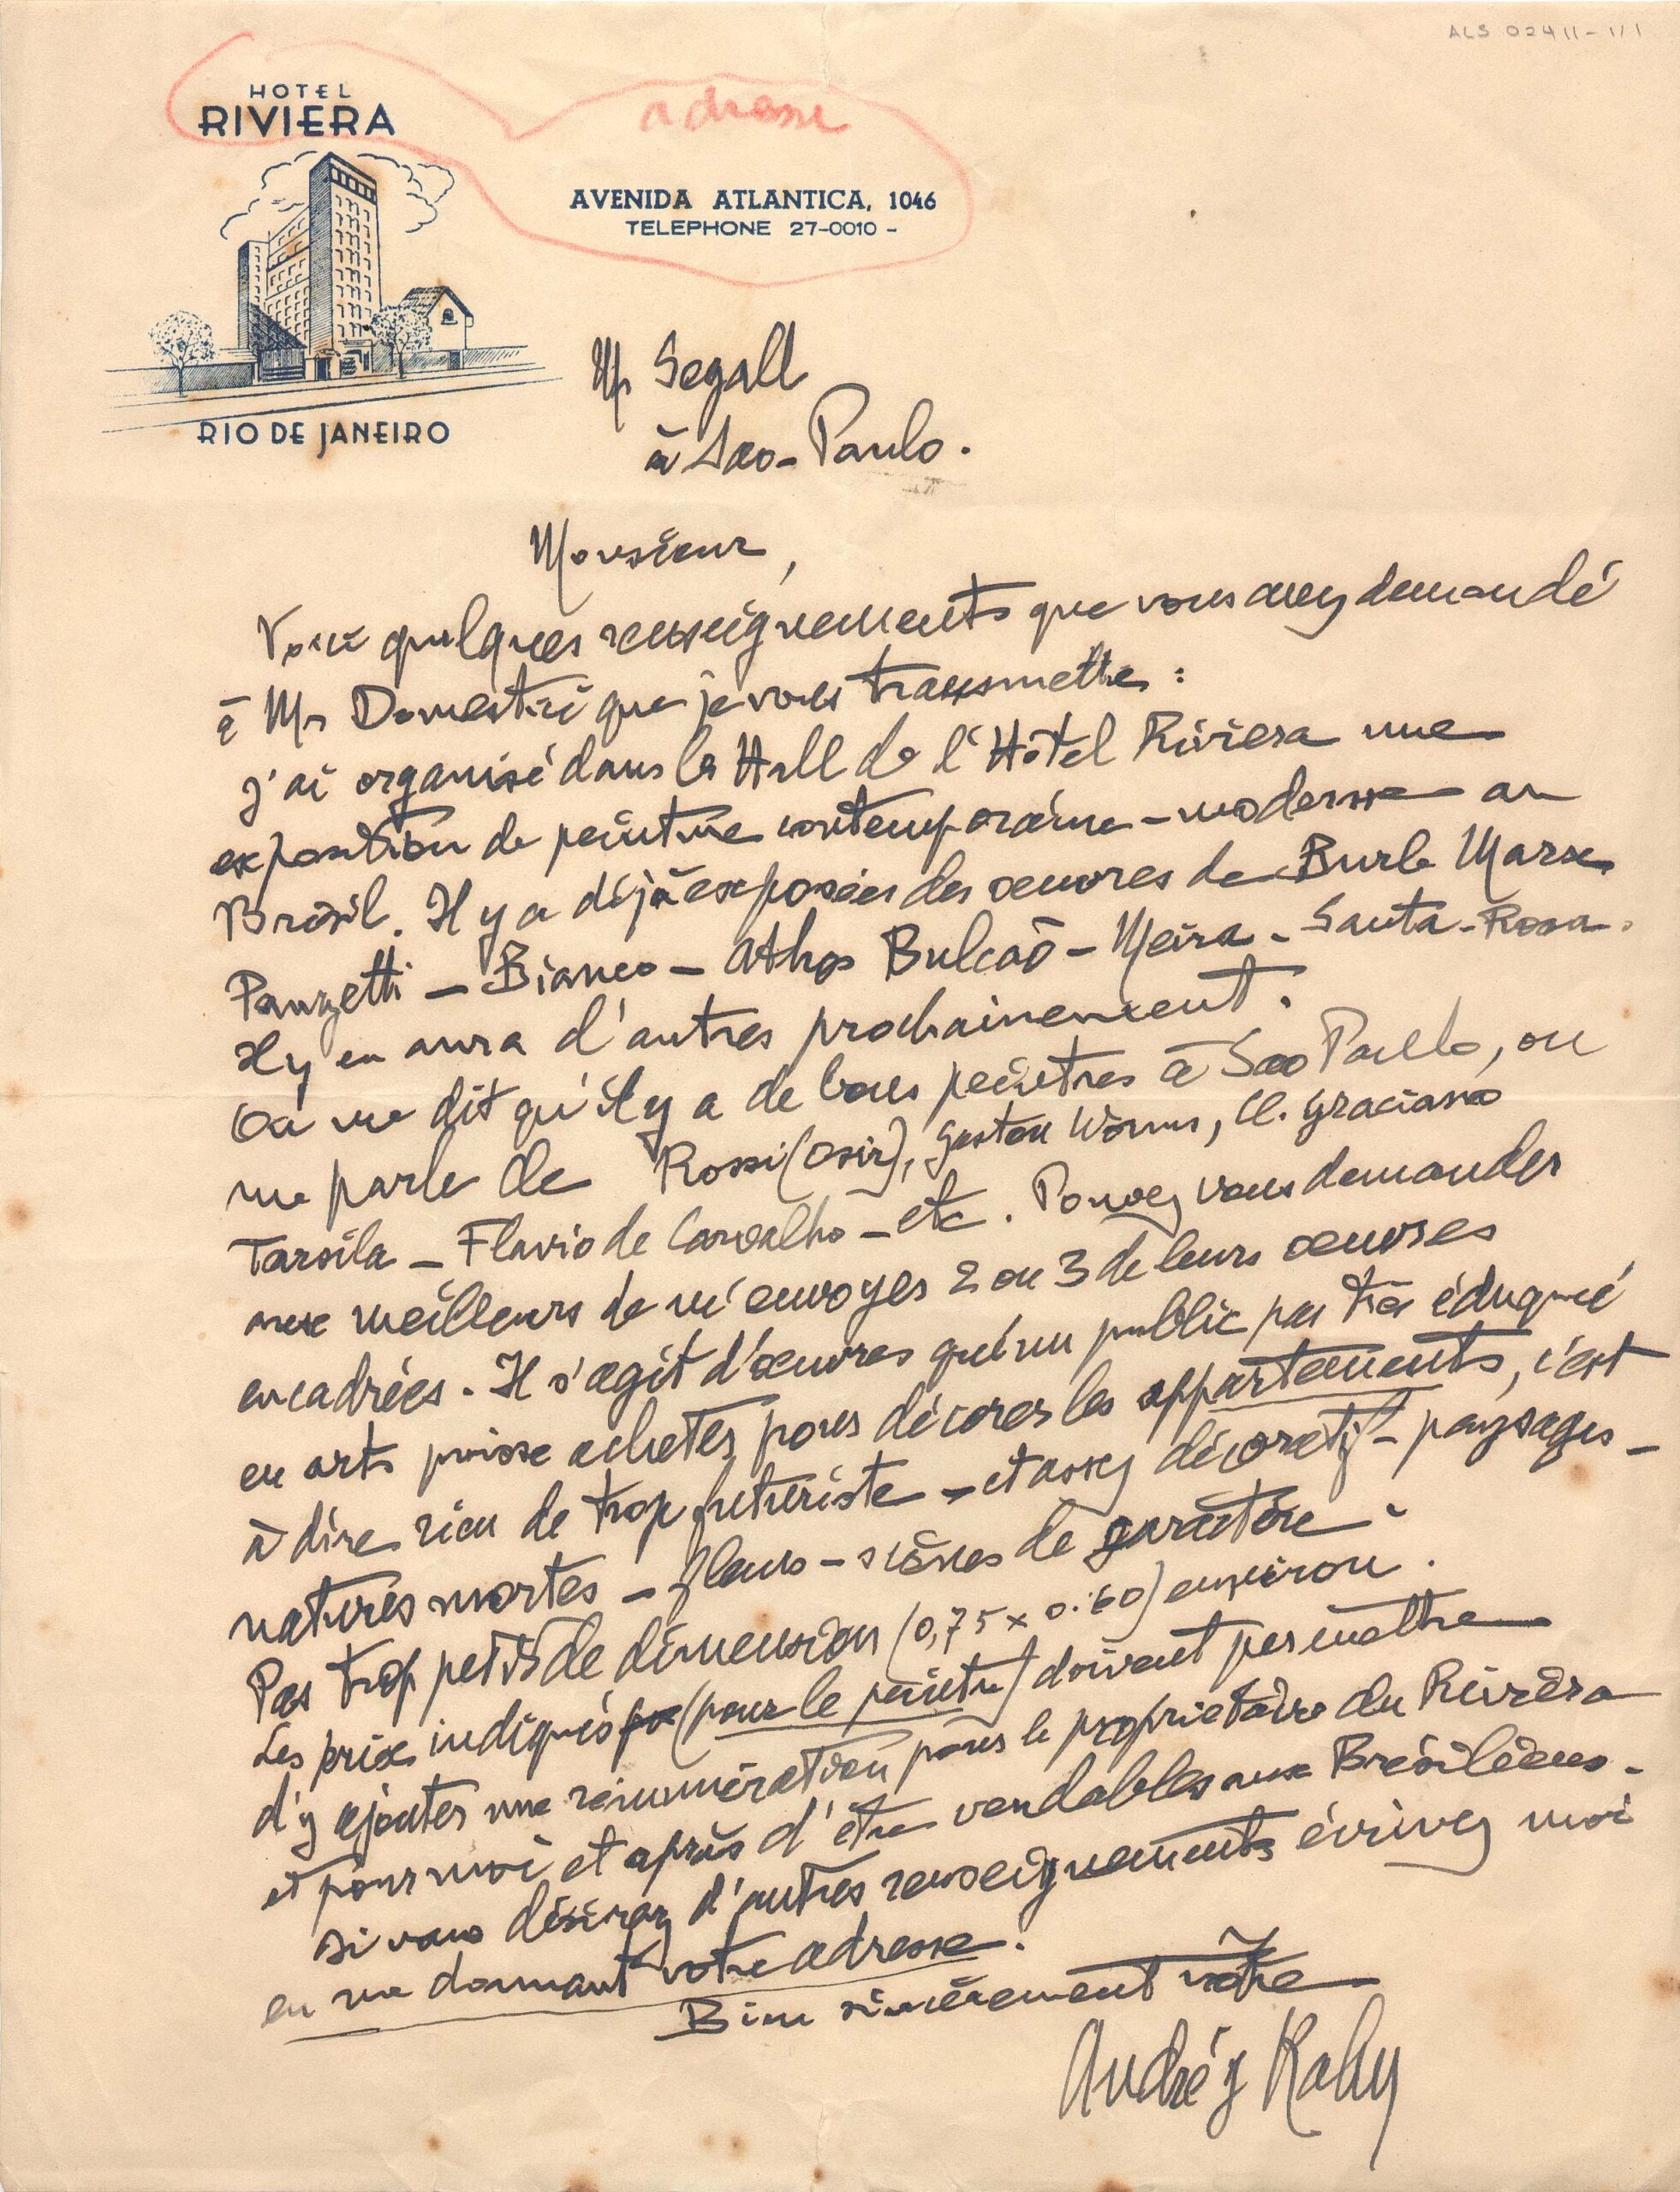 ALS 02411-1/1
HOTEL
RIVIERA
adresse
AVENIDA ATLANTICA, 1046
TELEPHONE 27-0010 -
RIO DE JANEIRO
Mr Segall
à Sao-Paulo.
Monsieur,
Voici quelques renseignements que vous avez demandé
à Mr Domestici que je vous transmette :
J'ai organisé dans le Hall de l'Hôtel Riviera une
exposition de peinture contemporaine-moderne au
Brésil. Il y a déjà exposées des oeuvres de Burle Marx
Panzetti - Bianco - Athos Bulcaõ - Meira - Santa-Rosa.
Il y en aura d'autres prochainement.
On me dit qu'il y a de bons peintres à Sao Paulo, on
me parle de Rossi (Osir), Gaston Worms, Cl. Graciano
Tarsila - Flavio de Carvalho - etc. Pouvez vous demander
aux meilleurs de m'envoyer 2 ou 3 de leurs oeuvres
encadrées. Il s'agit d'oeuvres qu'un public pas très éduqué
en arts puisse acheter pour décorer les appartements, c'est
à dire rien de trop futuriste - et assez décoratif - paysages -
natures mortes - fleurs - scènes de caractère.
Pas trop petits de dimension (0,75 x 0.60) environ.
Les prix indiqués (pour le peintre) doivent permettre
d'y ajouter une rénumération pour le propriétaire du Riviera
et pour moi et après d'être vendables aux Brésiliens.
Si vous désirez d'autres renseignements écrivez moi
en me donnant votre adresse.
Bien sincèrement vôtre
André